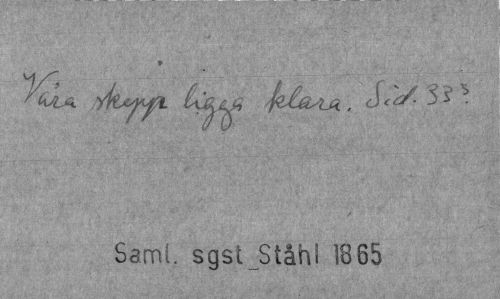 Våra skepp ligga klara. Sid. 33?
Saml. sgst_Ståhl 1865